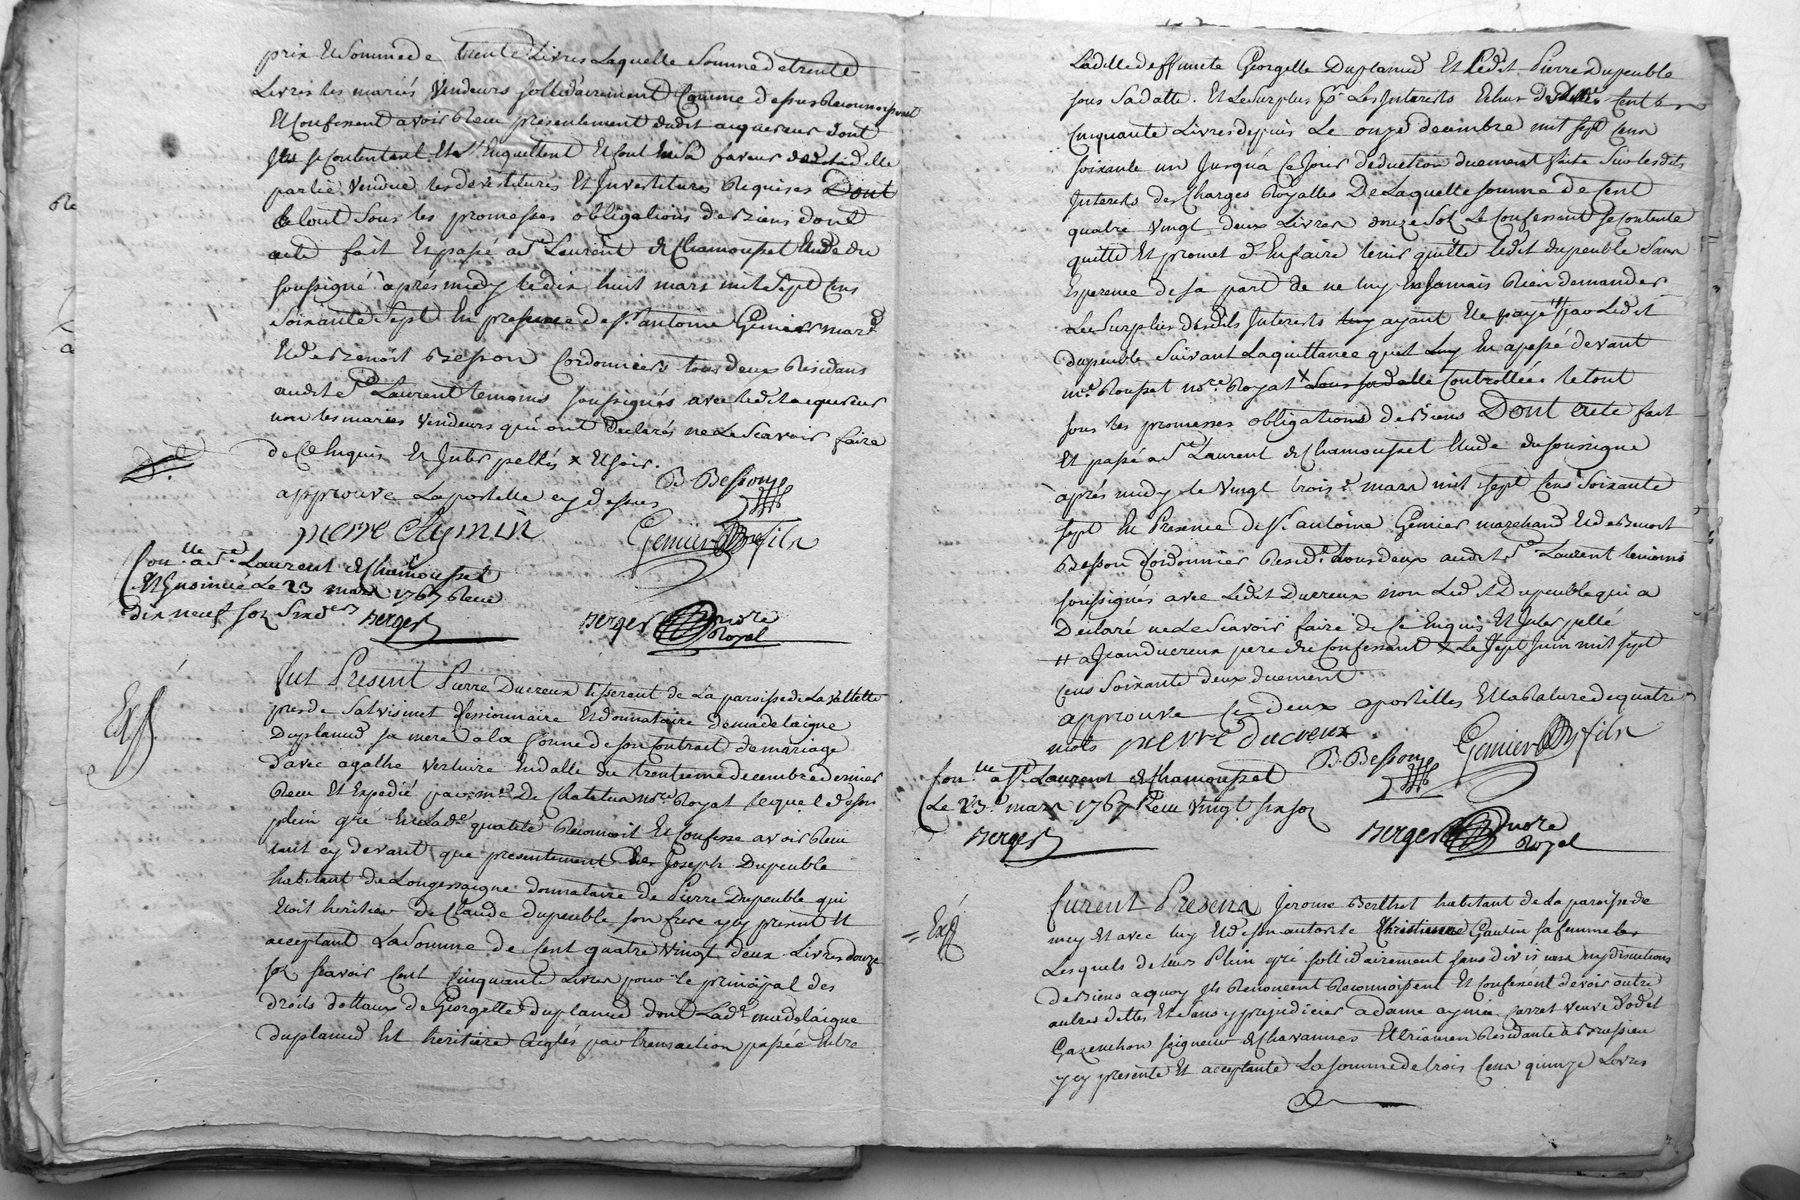 prix et somme de trente Livres Laquelle Somme de trente
Livres les mariés Vendeurs sollidairement Comme dessus Reconnoissent
Et Confessent avoir Receu presentement dudit acquereur dont
Ils se contentent Et Enquittent Et font En Sa faveur de ladelle
partie Vendue les devestitures Et Investitures Requises Dont
le tout Sous les promesses obligations de Biens dont
acte fait Et passé a St Laurent de Chamousset Etude du
soussigné après midy le dix huit mars mil Sept Cens
Soixante Sept En presence de Sr antoine Genier mard
Et de Benoit Besson Cordonnier tous deux Residans
audit St Laurent temoins soussignés avec ledit acquereur
non les mariés Vendeurs qui ont Declarés ne Le Scavoir faire
de Ce Enquis Et Interpellés x Et soir.
approuve La postille cy dessus
B. Besson
pierre Chymin
Genier fils
Con.lle a St Laurent de Chamousset
Et Insinué Le 23 mars 1767 Receu
dix neuf sols six drs Berger
Berger nore
Royal
Exp
fut Present Pierre Ducreux tisserant de La paroisse de La Vallette
pres de Salvisinet Cessionnaire Et donnataire de madelaigne
Duplamd sa mere a la forme de son Contrait de mariage
d'avec agathe Vertuire En datte du trentieme decembre dernier
Receu Et Expedié par me De Chatelux nore Royal lequel de son
plein gré En Lade qualité Reconnoit Et Confesse avoir Receu
tant cy devant que presentement de Joseph Dupeuble
habitant de Longessaigne donnataire de Pierre Dupeuble qui
Etoit heritier de Claude dupeuble son frere icy present Et
acceptant La Somme de Cent quatre Vingt deux Livres douze
sol scavoir Cent Cinquante Livres pour le principal des
droits dottaux de Georgette duplamd dont Lade madelaigne
Duplamd Est heritiere Reglés par transaction passée Entre
Ladelle deffunte Georgette Duplamd Et Ledit Pierre dupeuble
sous Sa datte. Et Le surplus pr Les Interests Echus desdittes Cent
Cinquante Livres depuis Le onze decembre mil sept Cens
soixante un Jusqu'à Ce Jour deduction duement faite Sur lesdits
Interests des Charges Royalles De Laquelle somme de Cent
quatre Vingt deux Livres douze Sol Le Confessant se contente
quitte Et promet d'En faire tenir quitte ledit dupeuble Sans
Esperence de sa part de ne luy En Jamais Rien demander
Le Surplus desdits Interests luy ayant Ete payé par Ledit
dupeuble Suivant La quittance quil Luy En a passé devant
me Rousset nore Royal x sous sa datte Controllée le tout
sous les promesses obligations de Biens Dont acte fait
Et passé a St Laurent de Chamousset Etude du soussigne
après midy le Vingt trois mars mil sept Cens Soixante
sept En Presence de Sr antoine Genier marchand Et de Benoit
Besson Cordonnier Resid.t tous deux audit St Laurent temoins
soussignes avec Ledit Ducreux non Ledit Dupeuble qui a
Declaré ne Le Scavoir faire de Ce Enquis Et Interpellé
# a Jean ducreux pere du Confessant x Le Sept Juin mil sept
Cens Soixante deux duement
approuve Ces deux apostilles Et La Rature de quatre
mots pierre ducreux
B. Besson
Genier fils
Con.lle a St Laurent de Chamousset
Le 23 mars 1767 Receu Vingt six sol
Berger
Berger nore
Royal
= Exp
furent Presens Jerome Berthet habitant de La paroisse de
mey Et avec luy Et de son autorité Christienne Gautin sa femme
Lesquels de leur Plein gré sollidairement sans division ny discutions
de Biens a quoy Ils Renoncent Reconnoissent Et Confessent devoir outre
autres dettes Et Sans y prejudicier a dame aymée Carret Veuve d'odet
Gazenchon seigneur de Chavannes Et tréamen Residante a Brussieu
icy presente Et acceptante La somme de trois Cens quinze Livres